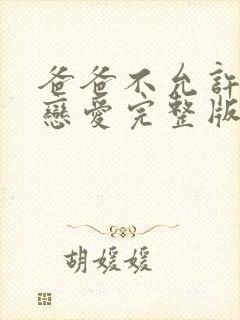 爸爸不允許
戀愛完整版
胡媛媛